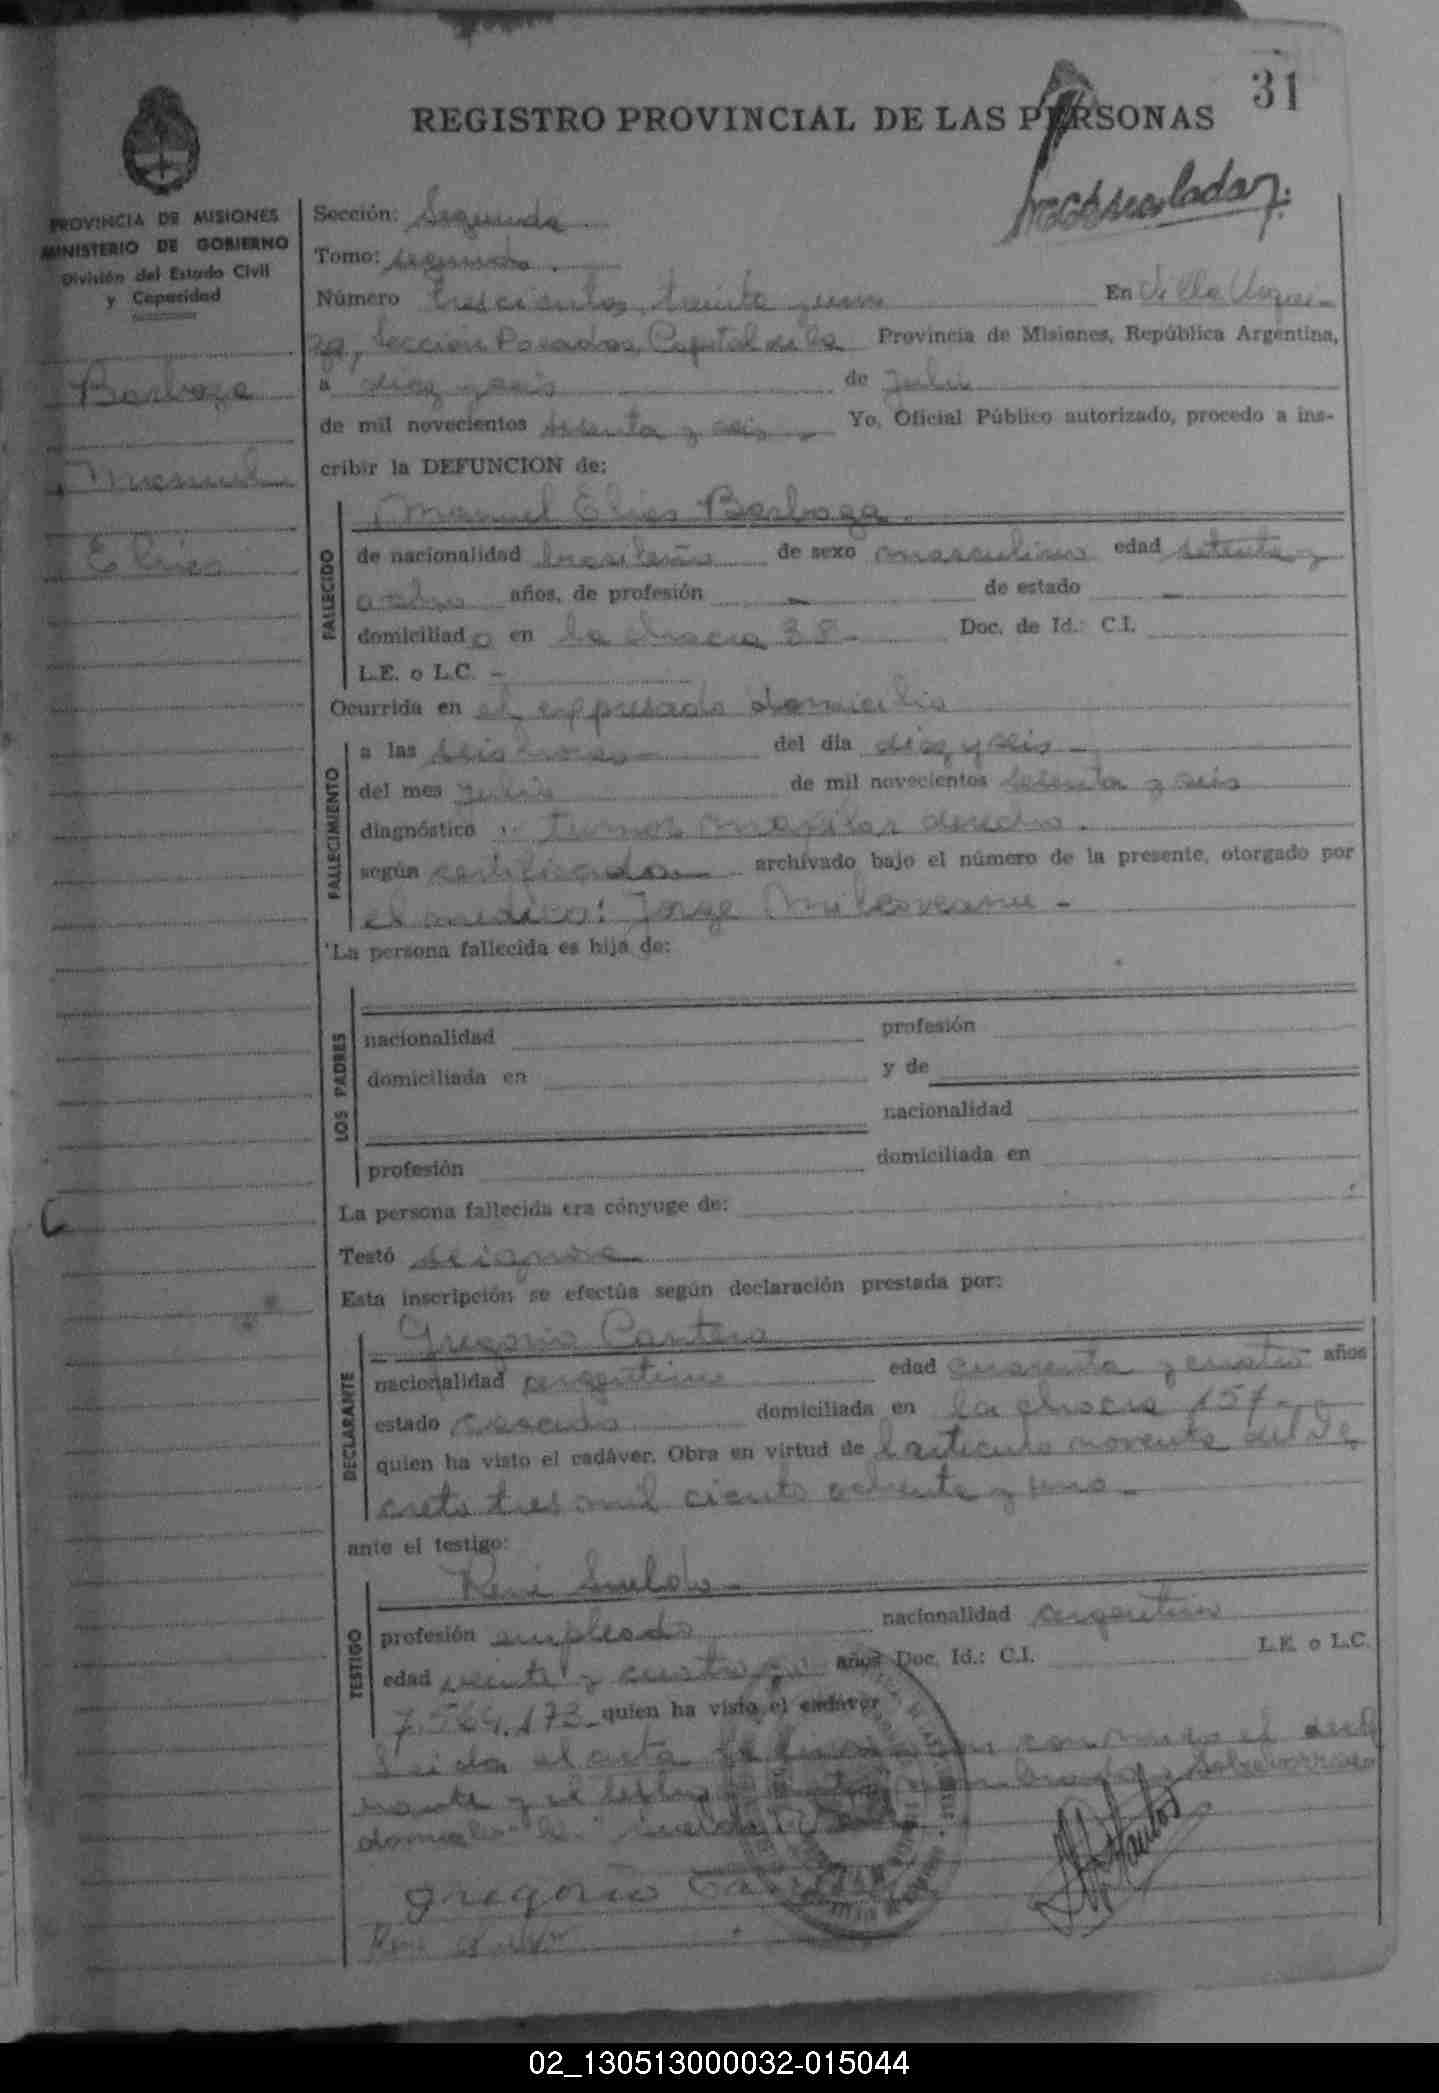 31
REGISTRO PROVINCIAL DE LAS PERSONAS
PROVINCIA DE MISIONES
MINISTERIO DE GOBIERNO
División del Estado Civil
y Capacidad
Barboza
Manuel
Elias
Sección: Segunda
Tomo: segundo
Número trescientos treinta y uno En Villa Urqui-
za, Sección Posadas, Capital de la Provincia de Misiones, República Argentina,
a diez y seis de Julio
de mil novecientos sesenta y seis Yo, Oficial Público autorizado, procedo a ins-
cribir la DEFUNCION de:
Manuel Elias Barboza
FALLECIDO
de nacionalidad brasileño de sexo masculino edad setenta y
ocho años, de profesión - de estado -
domiciliado en la chacra 38 - Doc. de Id.: C.I.
L.E. o L.C. -
Ocurrida en el expresado domicilio
FALLECIMIENTO
a las seis horas del día diez y seis -
del mes Julio de mil novecientos sesenta y seis
diagnóstico tumor maxilar derecho
según certificado archivado bajo el número de la presente, otorgado por
el médico: Jorge Milcoveanu -
La persona fallecida es hija de:
LOS PADRES
nacionalidad profesión
domiciliada en y de
nacionalidad
profesión domiciliada en
La persona fallecida era cónyuge de:
Testó se ignora
Esta inscripción se efectúa según declaración prestada por:
Gregorio Cantero
DECLARANTE
nacionalidad argentino edad cuarenta y cuatro años
estado casado domiciliada en la chacra 157 -
quien ha visto el cadáver. Obra en virtud de l artículo noventa del De
creto tres mil ciento ochenta y uno -
ante el testigo:
René Sueldo
TESTIGO
profesión empleado nacionalidad argentino
edad veinte y cuatro años Doc. Id.: C.I. L.E. o L.C.
7.564.173 quien ha visto el cadáver
Leida el acta conmigo el decla
rante y el testigo
Gregorio
02_130513000032-015044